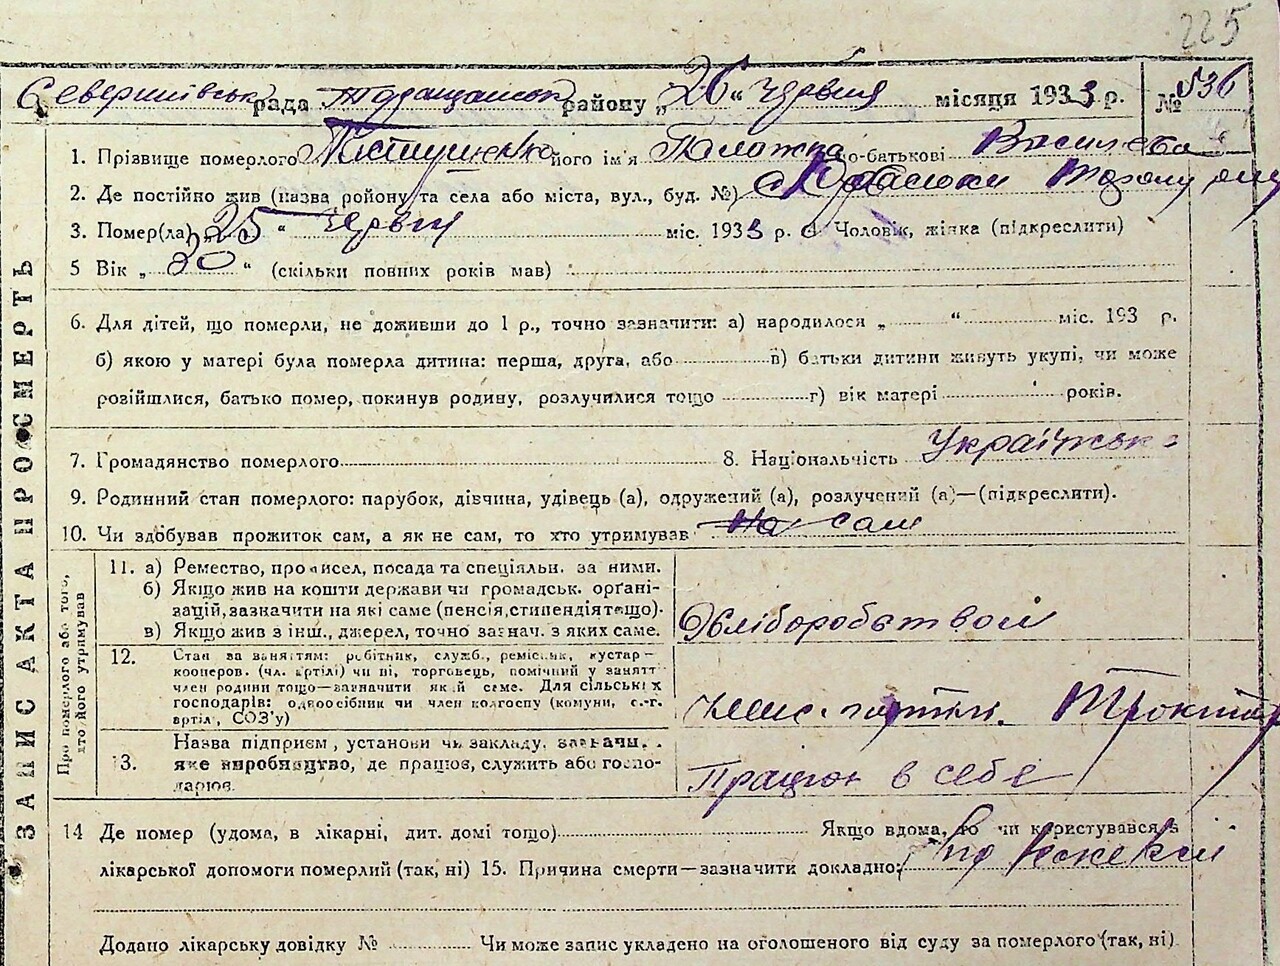 225
рада району „26“ Червня місяця 1933 р. № 536
1. Прізвище померлого його ім'я по-батькові
2. Де постійно жив (назва ройону та села або міста, вул., буд. №) с.
3. Помер(ла) „25“ Червня міс. 1933 р. 4. Чоловік, жінка (підкреслити)
5 Вік „30“ (скільки повних років мав)
6. Для дітей, що померли, не доживши до 1 р., точно зазначити: а) народилося „ “ міс. 193 р.
б) якою у матері була померла дитина: перша, друга, або в) батьки дитини живуть укупі, чи може
розійшлися, батько помер, покинув родину, розлучилися тощо г) вік матері років.
7. Громадянство померлого 8. Національчість Українськ
9. Родинний стан померлого: парубок, дівчина, удівець (а), одружений (а), розлучений (а)—(підкреслити).
10. Чи здобував прожиток сам, а як не сам, то хто утримував сам
11. а) Ремество, промисел, посада та спеціяльн. за ними.
б) Якщо жив на кошти держави чи громадськ. орґані-
зацій, зазначити на які саме (пенсія, стипендія тощо).
в) Якщо жив з інш., джерел, точно зазнач. з яких саме.
Хліборобством
12. Стан за заняттям: робітник, служб., реміснык, кустар—
кооперов. (чл. артілі) чи ні, торговець, помічний у занятт
член родини тощо—зазначити який семе. Для сільськіх
господарів: одноосібник чи член колгоспу (комуни, с.-г.
артілі, СОЗ'у)
13. Назва підприєм, установи чи закладу, зазначи.
яке виробництво, де працює, служить або госпо-
дарює.
Працює в себе
14 Де помер (удома, в лікарні, дит. домі тощо) Якщо вдома, то чи користувався
лікарської допомоги померлий (так, ні) 15. Причина смерти—зазначити докладно:
Додано лікарську довідку № Чи може запис укладено на оголошеного від суду за померлого (так, ні).
ЗАПИС АКТА ПРО СМЕРТЬ
Про померлого або того,
хто його утримував